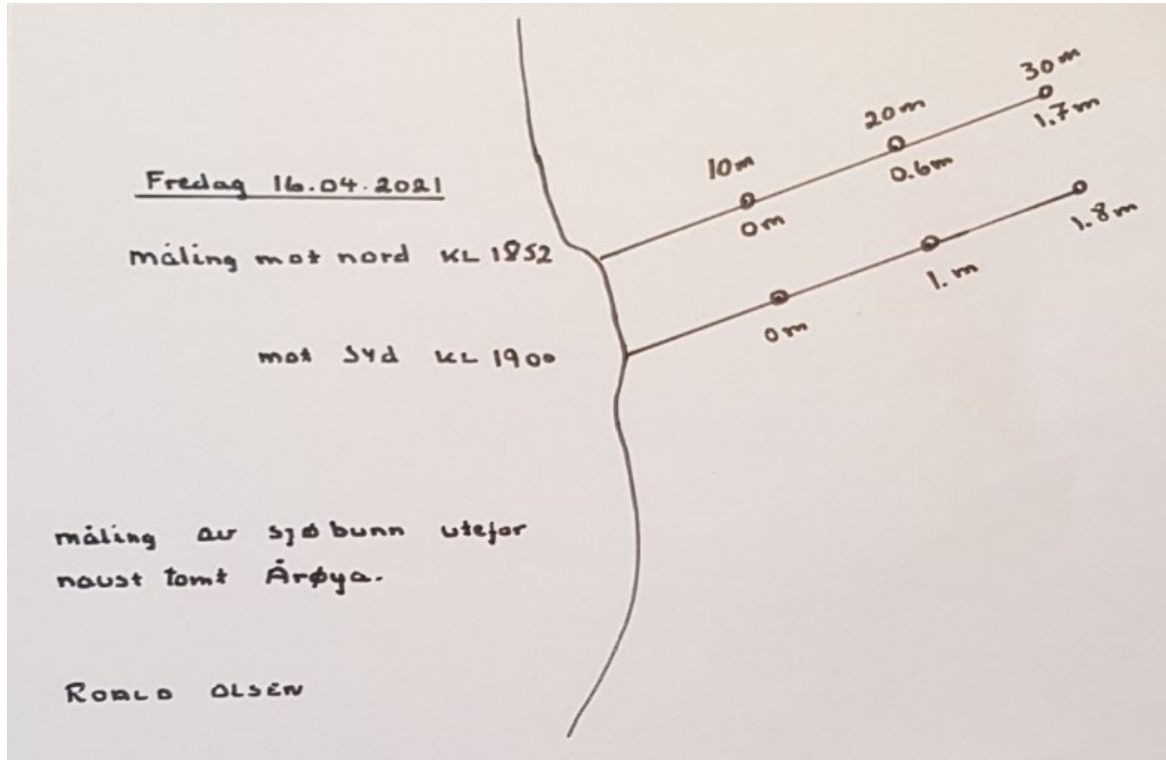 Fredag 16.04.2021
måling mot nord KL 1852
mot syd KL 1900
måling av sjøbunn utefor
naust tomt Årøya.
ROALD OLSEN
10m
20m
30m
0m
0.6m
1.7m
0m
1.m
1.8m